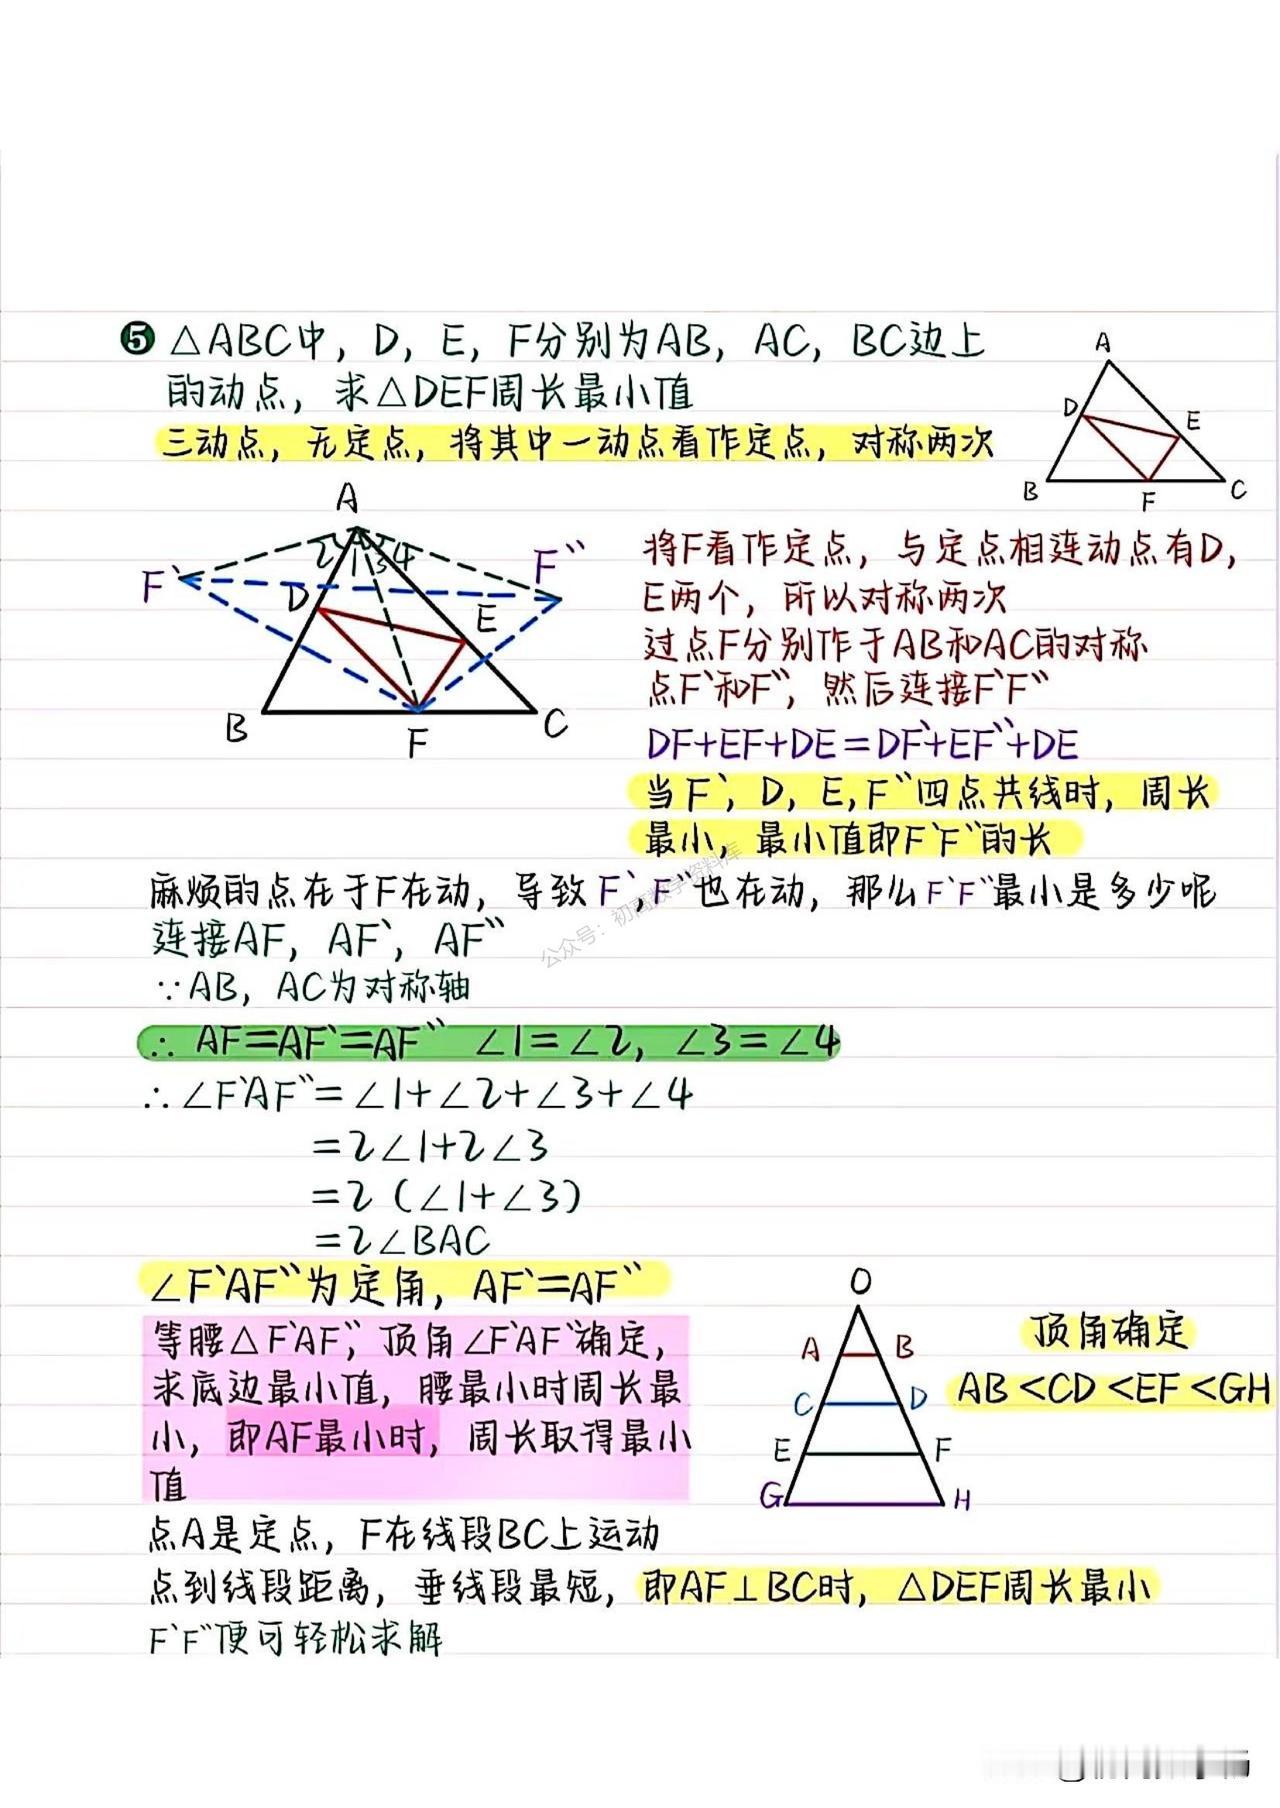 ❺ △ABC中，D，E，F分别为AB，AC，BC边上
的动点，求△DEF周长最小值
三动点，无定点，将其中一动点看作定点，对称两次
A
D
E
B
F
C
A
2
1
3
4
F`
F``
D
E
B
F
C
将F看作定点，与定点相连动点有D，
E两个，所以对称两次
过点F分别作于AB和AC的对称
点F`和F``，然后连接F`F``
DF+EF+DE=DF`+EF``+DE
当F`，D，E，F``四点共线时，周长
最小，最小值即F`F``的长
麻烦的点在于F在动，导致F`，F``也在动，那么F`F``最小是多少呢
连接AF，AF`，AF``
∵AB，AC为对称轴
∴ AF=AF`=AF`` ∠1=∠2，∠3=∠4
∴∠F`AF``=∠1+∠2+∠3+∠4
=2∠1+2∠3
=2（∠1+∠3）
=2∠BAC
∠F`AF``为定角，AF`=AF``
等腰△F`AF``，顶角∠F`AF``确定，
求底边最小值，腰最小时周长最
小，即AF最小时，周长取得最小
值
O
A
B
C
D
E
F
G
H
顶角确定
AB<CD<EF<GH
点A是定点，F在线段BC上运动
点到线段距离，垂线段最短，即AF⊥BC时，△DEF周长最小
F`F``便可轻松求解
公众号：初高数学资料库